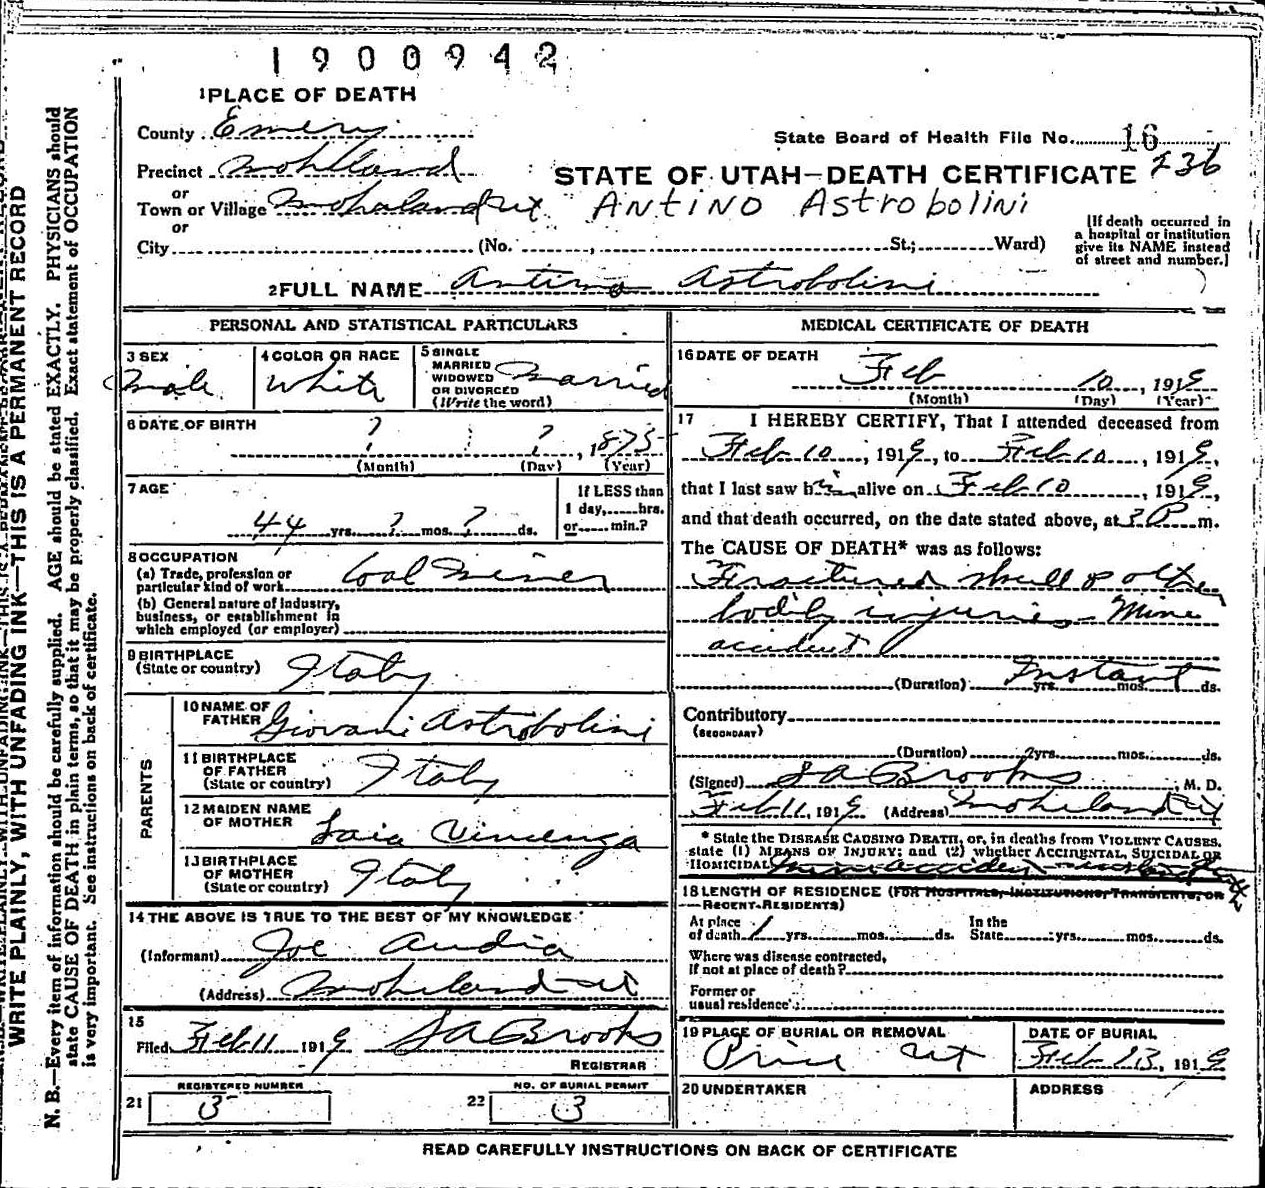 1900942
1 PLACE OF DEATH
County Emery
State Board of Health File No. 16
Precinct Mohland
STATE OF UTAH—DEATH CERTIFICATE 236
or
Town or Village Mohaland Ut
ANTINO ASTROBOLINI
or
City (No. , St.; Ward)
[If death occurred in
a hospital or institution
give its NAME instead
of street and number.]
2 FULL NAME Antino Astrobolini
PERSONAL AND STATISTICAL PARTICULARS
3 SEX
Male
4 COLOR OR RACE
White
5 SINGLE
MARRIED
WIDOWED
OR DIVORCED
(Write the word)
Married
6 DATE OF BIRTH
? ? , 1875
(Month) (Day) (Year)
7 AGE
44 yrs. ? mos. ? ds.
If LESS than
1 day, hrs.
or min.?
8 OCCUPATION
(a) Trade, profession or
particular kind of work Coal Miner
(b) General nature of Industry,
business, or establishment in
which employed (or employer)
9 BIRTHPLACE
(State or country) Italy
PARENTS
10 NAME OF
FATHER Giovani Astrobolini
11 BIRTHPLACE
OF FATHER
(State or country) Italy
12 MAIDEN NAME
OF MOTHER Laia Vincenza
13 BIRTHPLACE
OF MOTHER
(State or country) Italy
14 THE ABOVE IS TRUE TO THE BEST OF MY KNOWLEDGE
(Informant) Joe Audia
(Address) Moheland Ut
15
Filed Feb 11 1919 J A Brooks
REGISTRAR
REGISTERED NUMBER
21 3
NO. OF BURIAL PERMIT
22 3
MEDICAL CERTIFICATE OF DEATH
16 DATE OF DEATH
Feb 10, 1919
(Month) (Day) (Year)
17 I HEREBY CERTIFY, That I attended deceased from
Feb 10, 1919, to Feb 10, 1919,
that I last saw him alive on Feb 10, 1919,
and that death occurred, on the date stated above, at 3 P m.
The CAUSE OF DEATH* was as follows:
Fractured skull & other
bodily injuries - Mine
accident
(Duration) Instant yrs. mos. ds.
Contributory
(SECONDARY)
(Duration) yrs. mos. ds.
(Signed) J A Brooks, M. D.
Feb 11, 1919 (Address) Moheland Ut
* State the DISEASE CAUSING DEATH, or, in deaths from VIOLENT CAUSES,
state (1) MEANS OF INJURY; and (2) whether ACCIDENTAL, SUICIDAL OR
HOMICIDAL. Mine accident
18 LENGTH OF RESIDENCE (FOR HOSPITALS, INSTITUTIONS, TRANSIENTS, OR
RECENT RESIDENTS)
At place
of death 1 yrs. mos. ds.
In the
State yrs. mos. ds.
Where was disease contracted,
If not at place of death?
Former or
usual residence
19 PLACE OF BURIAL OR REMOVAL
Price Ut
DATE OF BURIAL
Feb 13, 1919
20 UNDERTAKER
ADDRESS
READ CAREFULLY INSTRUCTIONS ON BACK OF CERTIFICATE
WRITE PLAINLY, WITH UNFADING INK—THIS IS A PERMANENT RECORD
N. B.—Every item of information should be carefully supplied. AGE should be stated EXACTLY. PHYSICIANS should
state CAUSE OF DEATH in plain terms, so that it may be properly classified. Exact statement of OCCUPATION
is very important. See instructions on back of certificate.